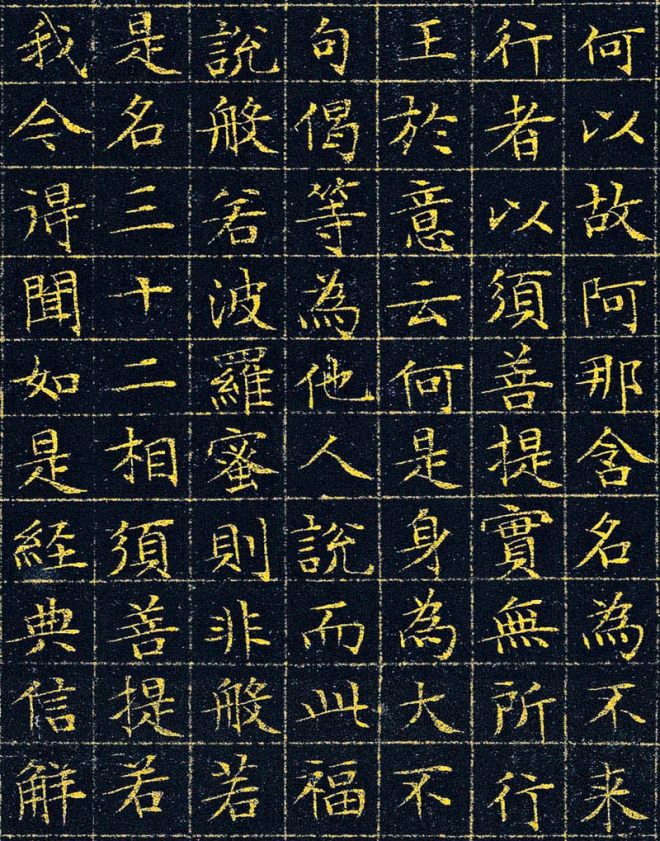 何以故阿那含名為不来
行者以須菩提實無所行
王於意云何是身為大不
句偈等為他人說而此福
說般若波羅蜜則非般若
是名三十二相須菩提若
我今得聞如是経典信解